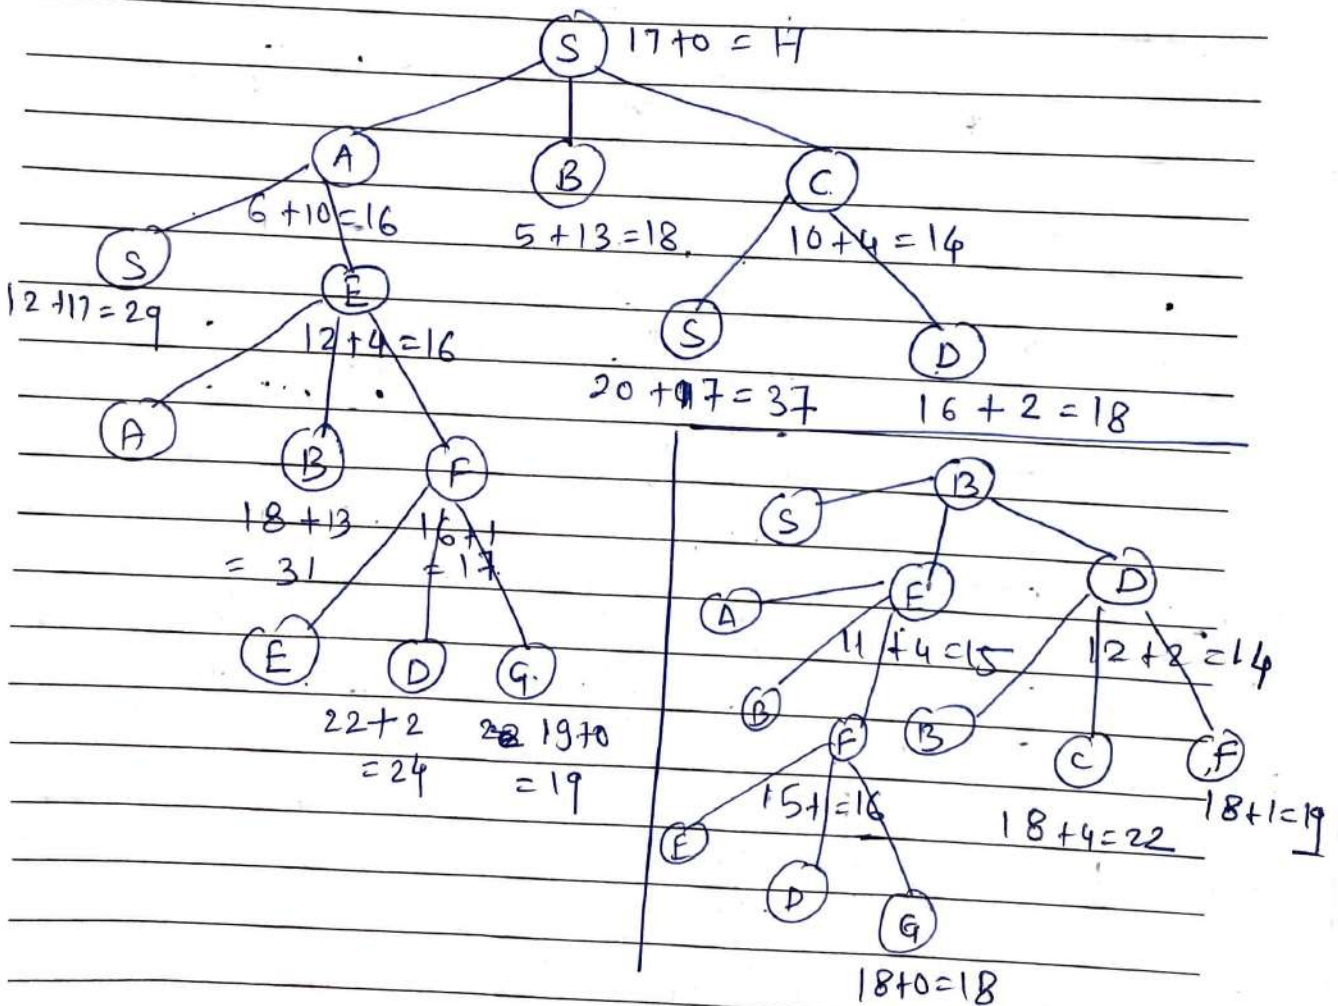 S 17+0 = 17
A B C
6+10=16
5+13=18
10+4=14
S E
12+17=29
12+4=16
S D
20+17=37
16+2=18
A B F
18+13
= 31
16+1
=17
E D G
22+2
=24
19+0
=19
B
S
E D
A
11+4=15
12+2=14
B F B C F
15+1=16
18+4=22
18+1=19
E D G
18+0=18